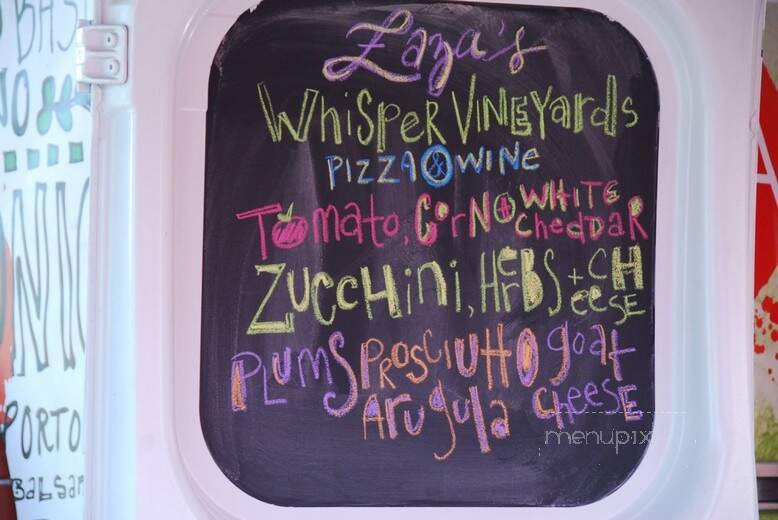 Zaza's
Whisper Vineyards
PIZZA & WINE
Tomato, Corn + WHITE
Cheddar
Zucchini, Herbs + CHEESE
PLUMS PROSCIUTTO goat
Arugula cheese
menupix
BAS
NO
NIC
PORTO
BALSAM